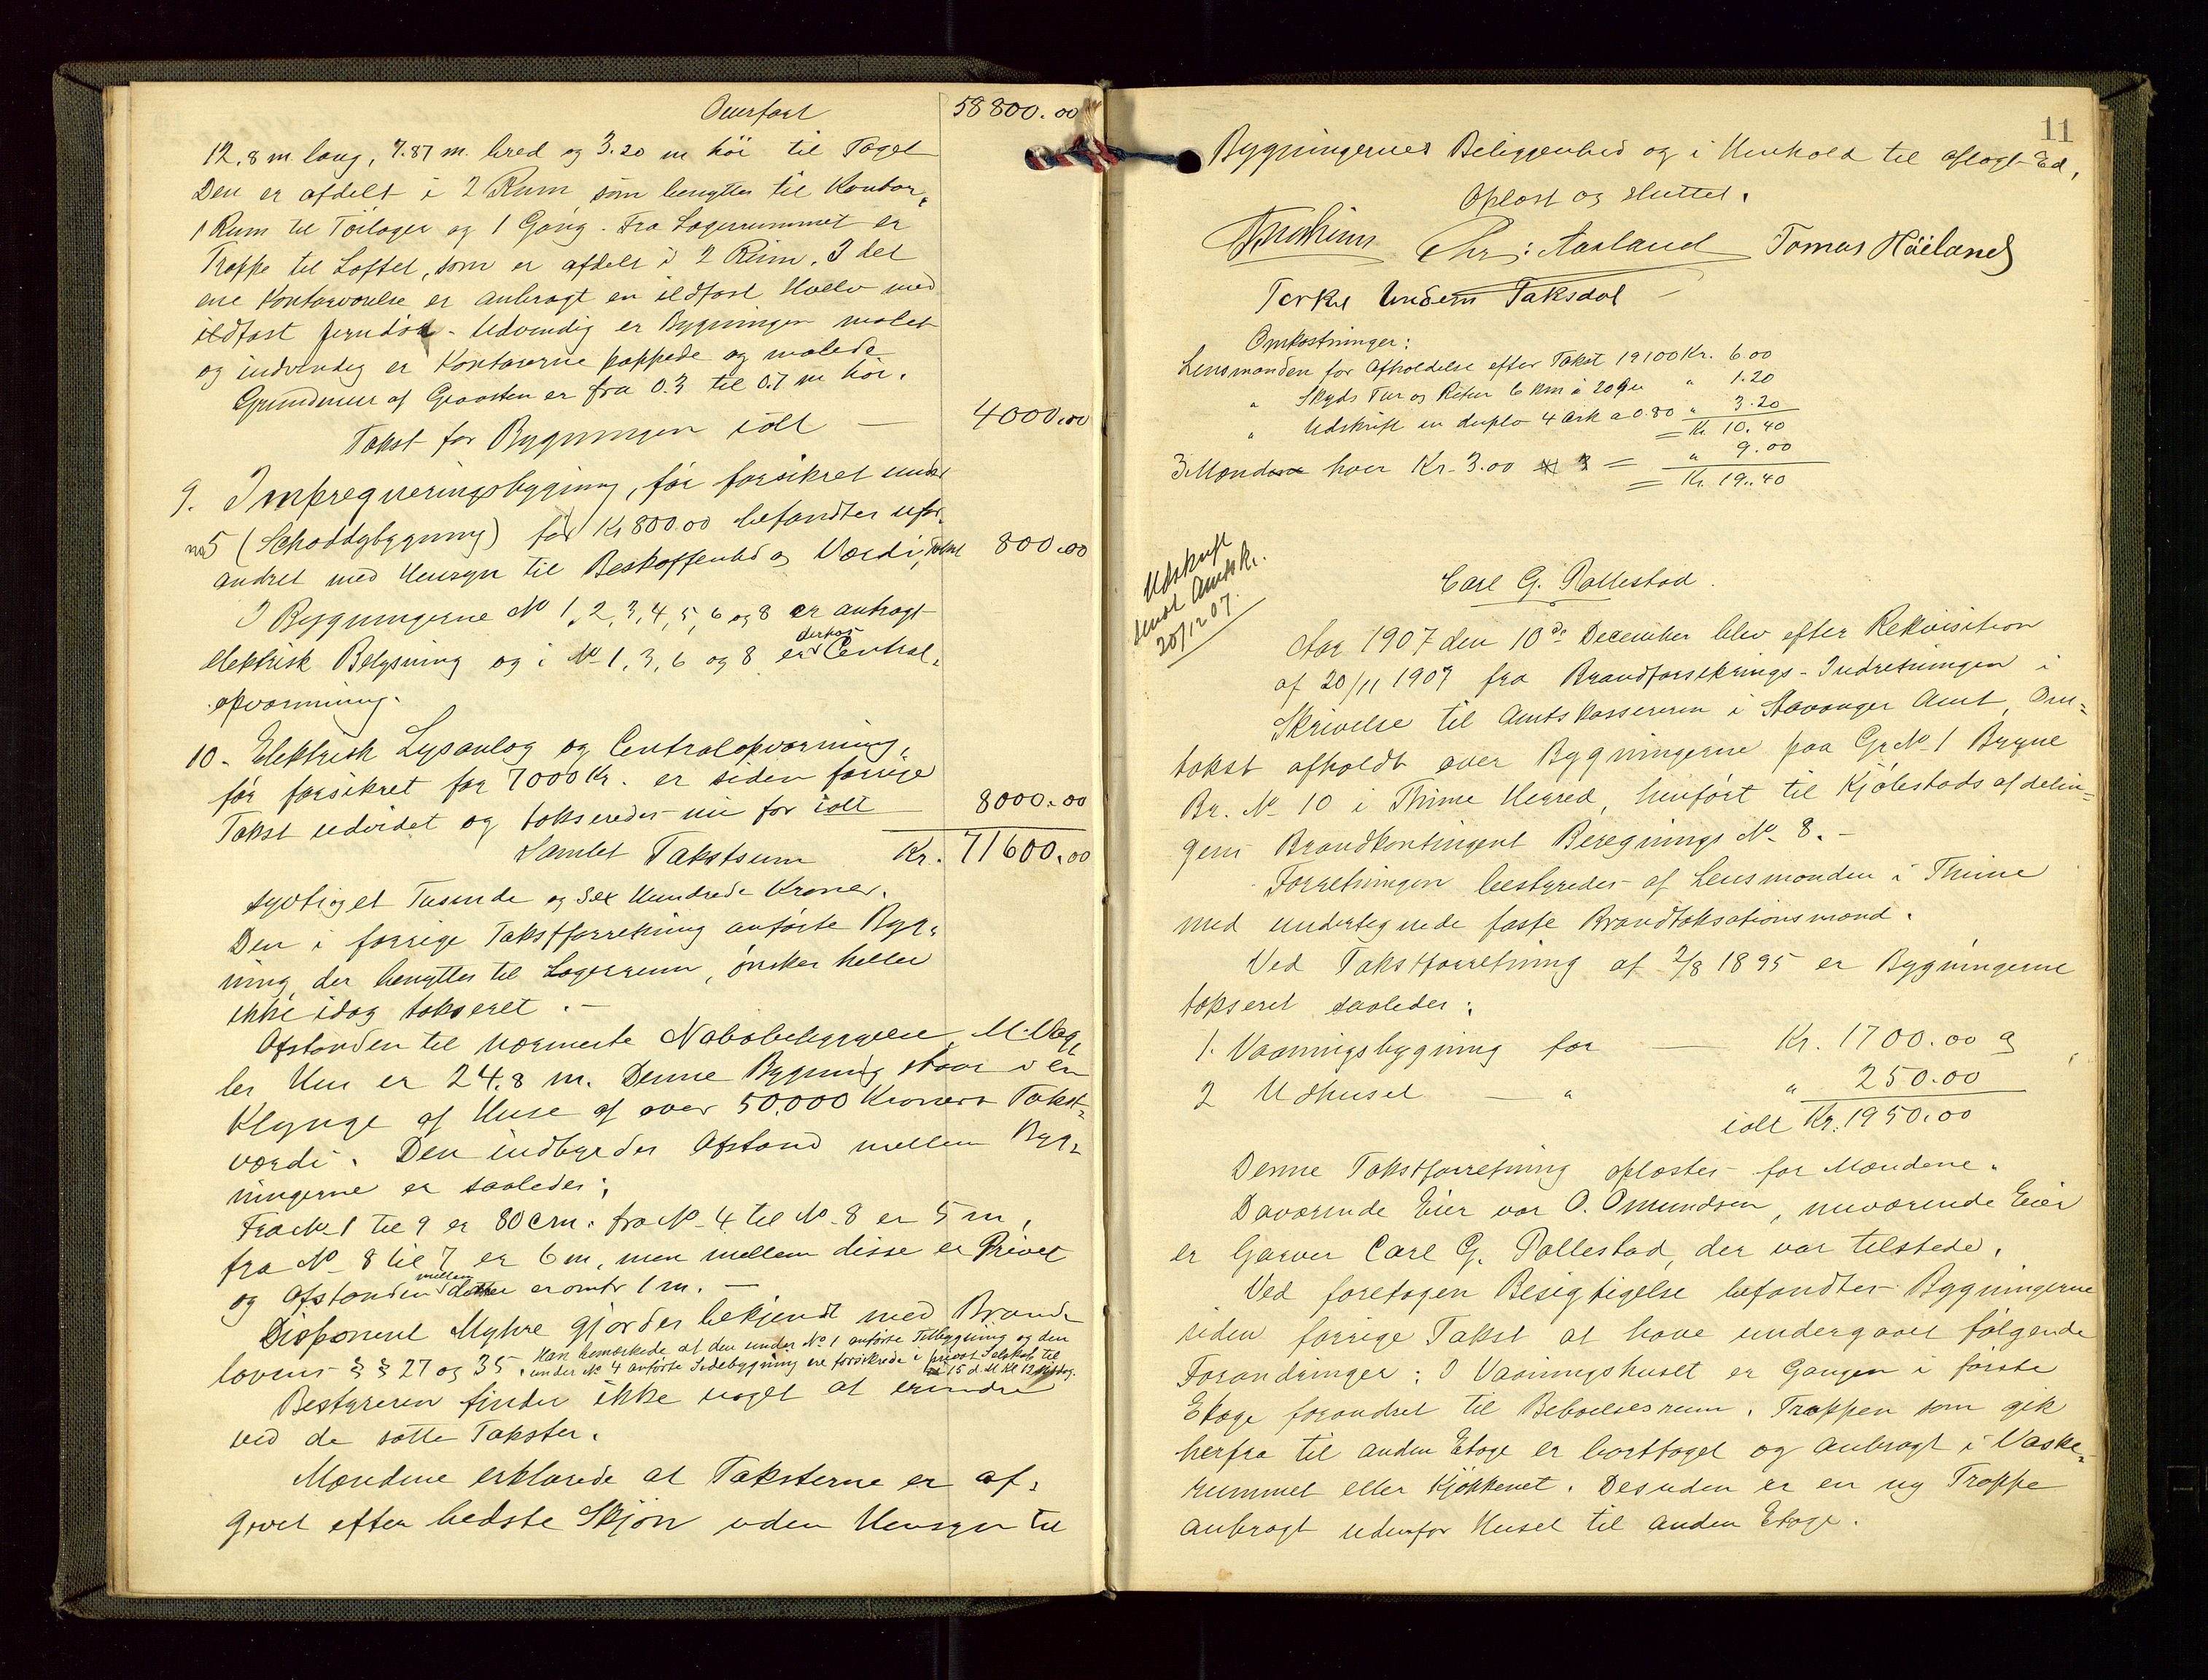 Overført 58800.00
12.8 m. lang, 7.87 m. bred og 3.20 m høi til Taget
Den er afdelt i 2 Rum som benyttes til Kontor,
1 Rum til Tøilager og 1 Gang. Fra Lagerrummet er
Trappe til Loftet, som er afdelt i 2 Rum. I det
ene Kontorværelse er anbragt en ildfast Hvelv med
ildfast Jerndør. Udvendig er Bygningen malet
og indvendig er Kontorerne pappede og malede
Grundmur af Graasten er fra 0.3 til 0.7 m høi.
Takst for Bygningen ialt — 4000.00
9. Impregneringsbygning, før forsikret under
no 5 (Schoddybygning) for Kr 800.00 befandtes ufor-
andret med Hensyn til Beskaffenhed og Værdi, Takst 800.00
I Bygningerne No 1, 2, 3, 4, 5, 6 og 8 er anbragt
elektrisk Belysning og i No 1, 3, 6 og 8 er derhos Central-
opvarmning.
10. Elektrisk Lysanlæg og Centralopvarming,
før forsikret for 7000 Kr. er siden forrige
Takst udvidet og takseredes nu for ialt 8000.00
Samlet Takstsum Kr. 71600.00
syvtiget Tusinde og Sex Hundrede Kroner.
Den i forrige Takstforretning anførte Byg-
ning der benyttes til Lagerrum, ønskes heller
ikke idag takseret. —
Afstanden til nærmeste Nabobebyggelse, M. Vag-
les Hus er 24.8 m. Denne Bygning staar i en
Klynge af Huse af over 50.000 Kroners Takst-
værdi. Den indbyrdes Afstand mellem Byg-
ningerne er saaledes:
Fra No 1 til 9 er 80 cm. fra No 4 til No 8 er 5 m,
fra No 8 til 7 er 6 m, men mellem disse er Privet
og Afstanden mellem dette er omtr 1 m. —
Disponent Myhre gjordes bekjendt med Brand-
lovens §§ 27 og 35. Han bemærkede at den under No 1 anførte Tilbygning og den
under No 4 anførte Sidebygning ere forsikrede i privat Selskab til
15 d. M. Kl 12 Middag.
Bestyreren finder ikke noget at erindre
ved de satte Takster.
Mændene erklærede at Taksterne er af-
givet efter bedste Skjøn uden Hensyn til
11
Bygningernes Beliggenhed og i Henhold til aflagt Ed,
Oplæst og sluttet.
Chr: Aarland Tomas Häiland
Torkel Undem Taksdal
Omkostninger:
Lensmanden for Afholdelse efter Takst 19100 Kr. 6.00
" Skyds Tur og Retur 6 Km à 20 Øre " 1.20
" Udskrift in duplo 4 Ark a 0.80 " 3.20
= Kr. 10.40
3 Mænd hver Kr. 3.00 = " 9.00
= Kr. 19.40
Udskrift
sendt Amtsk.
20/12 07.
Carl G. Pollestad.
Aar 1907 den 10de December blev efter Rekvisition
af 20/11 1907 fra Brandforsikrings-Indretningen i
Skrivelse til Amtskassereren i Stavanger Amt, Om-
takst afholdt over Bygningerne paa Gr No 1 Bryne
Br. No 10 i Thime Herred, henført til Kjøbstadsafdelin-
gens Brandkontingent Beregnings No 8. —
Forretningen bestyredes af Lensmanden i Thime
med undertegnede faste Brandtaksationsmænd.
Ved Takstforretning af 2/8 1895 er Bygningerne
takseret saaledes:
1. Vaaningsbygning for — Kr. 1700.00 og
2 Udhuset — " " 250.00
ialt Kr. 1950.00
Denne Takstforretning oplæstes for Mændene.
Daværende Eier var O. Omundsen, nuværende Eier
er Garver Carl G. Pollestad, der var tilstede.
Ved foretagen Besigtigelse befandtes Bygningerne
siden forrige Takst at have undergaaet følgende
Forandringer: I Vaaningshuset er Gangen i første
Etage forandret til Beboelsesrum. Trappen som gik
herfra til anden Etage er borttaget og anbragt i Vaske-
rummet eller Kjøkkenet. Desuden er en ny Trappe
anbragt udenfor Huset til anden Etage.